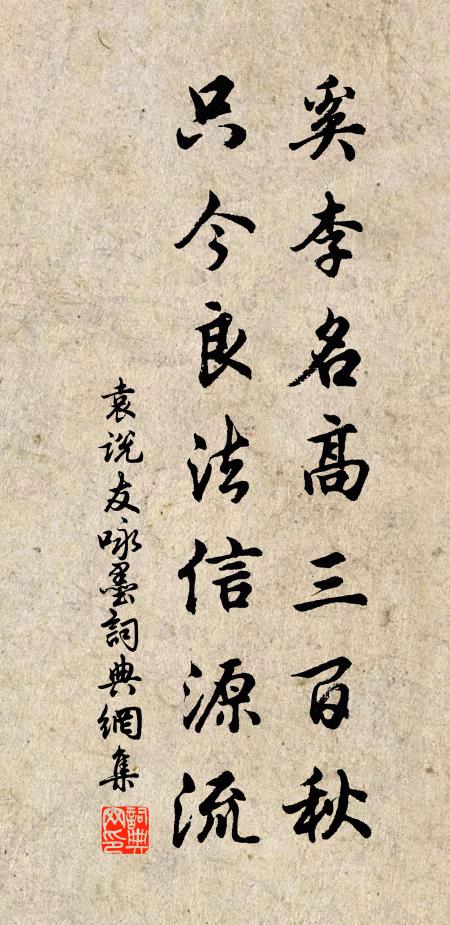 奚李名高三百秋
只今良法信源流
袁说友咏墨詞典網集
詞典网印